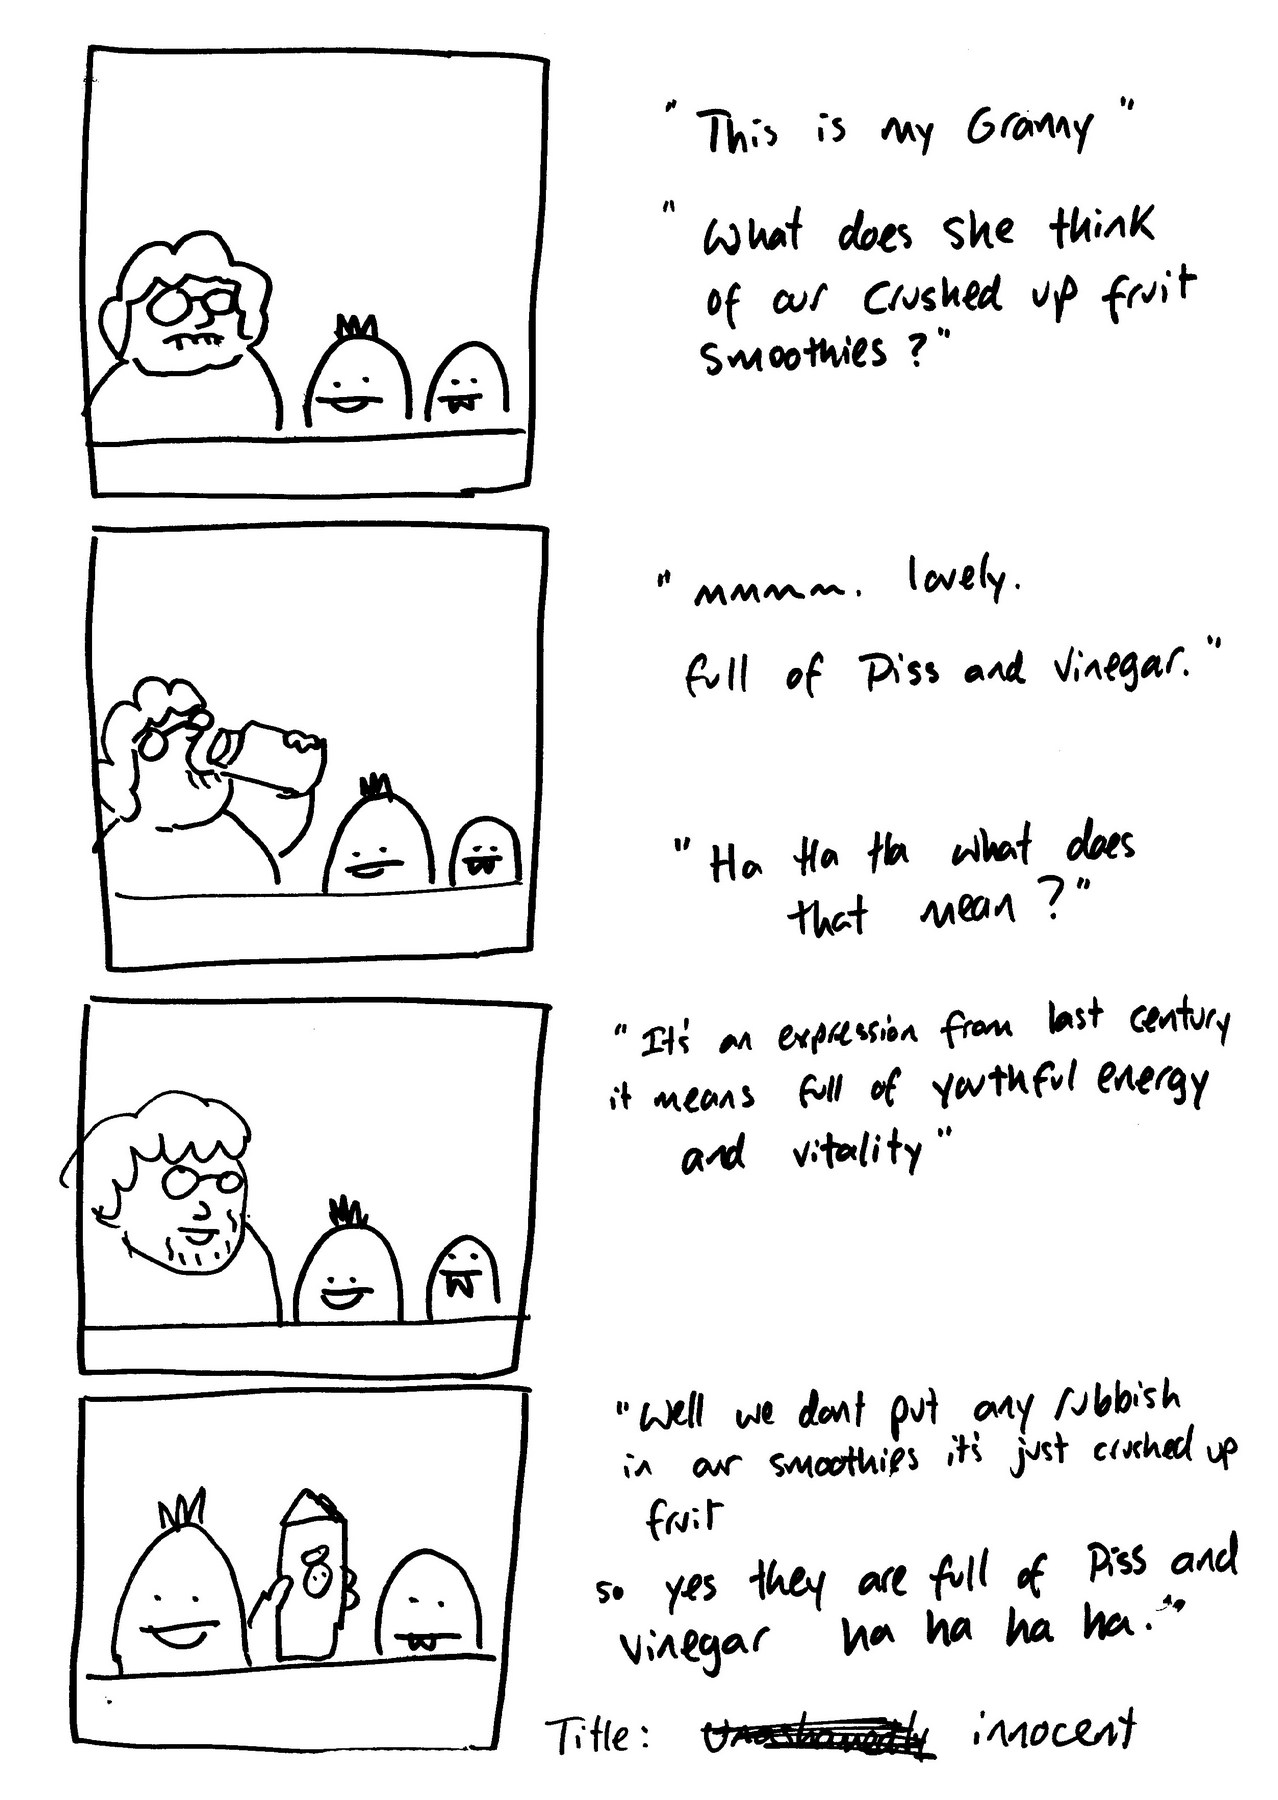 "This is my Granny"
"What does she think
of our crushed up fruit
smoothies?"
"mmmmm. lovely.
full of Piss and vinegar."
"Ha Ha Ha what does
that mean?"
"It's an expression from last century
it means full of youthful energy
and vitality"
"Well we dont put any rubbish
in our smoothies it's just crushed up
fruit
so yes they are full of Piss and
vinegar ha ha ha ha."
Title: Unashamedly innocent